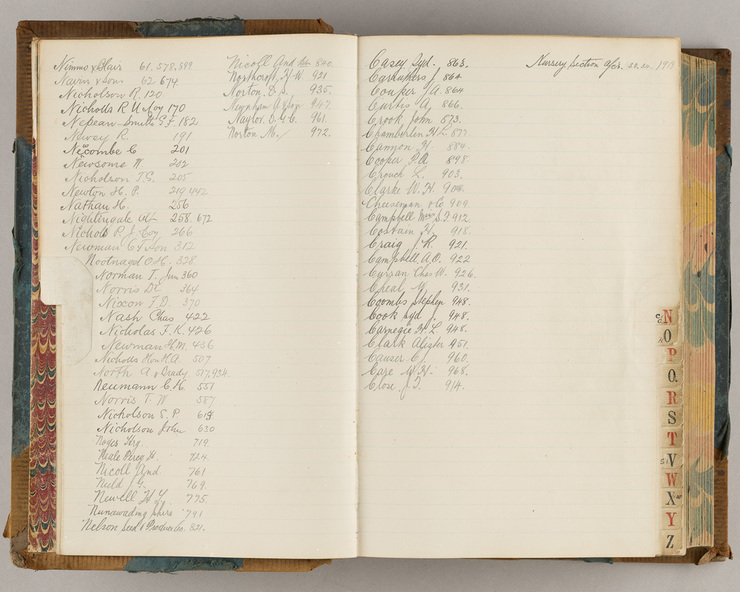 Nimmo & Blair 61. 578. 599
Nairn & Sons 62. 674
Nicholson R. 120
Nicholls R. U. & Coy 170
Nepean-Smith S. F. 182
Newey R. 191
Newcombe C 201
Newsome W. 202
Nicholson T. G. 205
Newton H. P. 219.442
Nathan H. 256
Nightengale 258. 672
Nichols P. J. & Coy 266
Newman C & Son 312
Nootnagel O. H. 328
Norman T. Jun 360
Norris D. E 364
Nixon T. D. 370
Nash Chas 422
Nicholas F. K. 426
Newman H. M. 436
Nicholls Hon H. A. 507
North A. & Brady 517. 934.
Neumann C. H. 551
Norris T. W 587
Nicholson S. P. 613
Nicholson John 630
Noyes Hy 719
Neale Percy H. 724
Nicoll And 761
Nuld J. G. 769
Newell W. Y. 775
Nunawading Shire 791
Nelson Seed & Produce Co. 821.
Nicoll And
Northcroft H. W. 921
Norton E. S. 935.
947.
Naylor E. G. C. 961.
Norton M. 972.
Casey Syd. 863.
Caretakers 864
Couper A. 864
Curtis A. 866.
Crook John 573.
Chamberlen H. 877.
Cannon H. 884.
Cooper P. A. 898.
Crouch L. 903.
Clarke W. H. 908.
Cheeseman & Co 909
Campbell Mrs S. P. 912.
Costain H. 918.
Craig J. R. 921.
Campbell A. O. 922
Curran Chas W. 926.
Cheal W. 931.
Coombs Stephen 948.
Cook Syd J. 948.
Carnegie H. L. 948.
Clark Alister 951.
Causer C. 960.
Case W. H. 968.
Close J. T. 914.
Nursery Section 1919
N
O
P
Q.
R
S
T
V
W
X
Y
Z